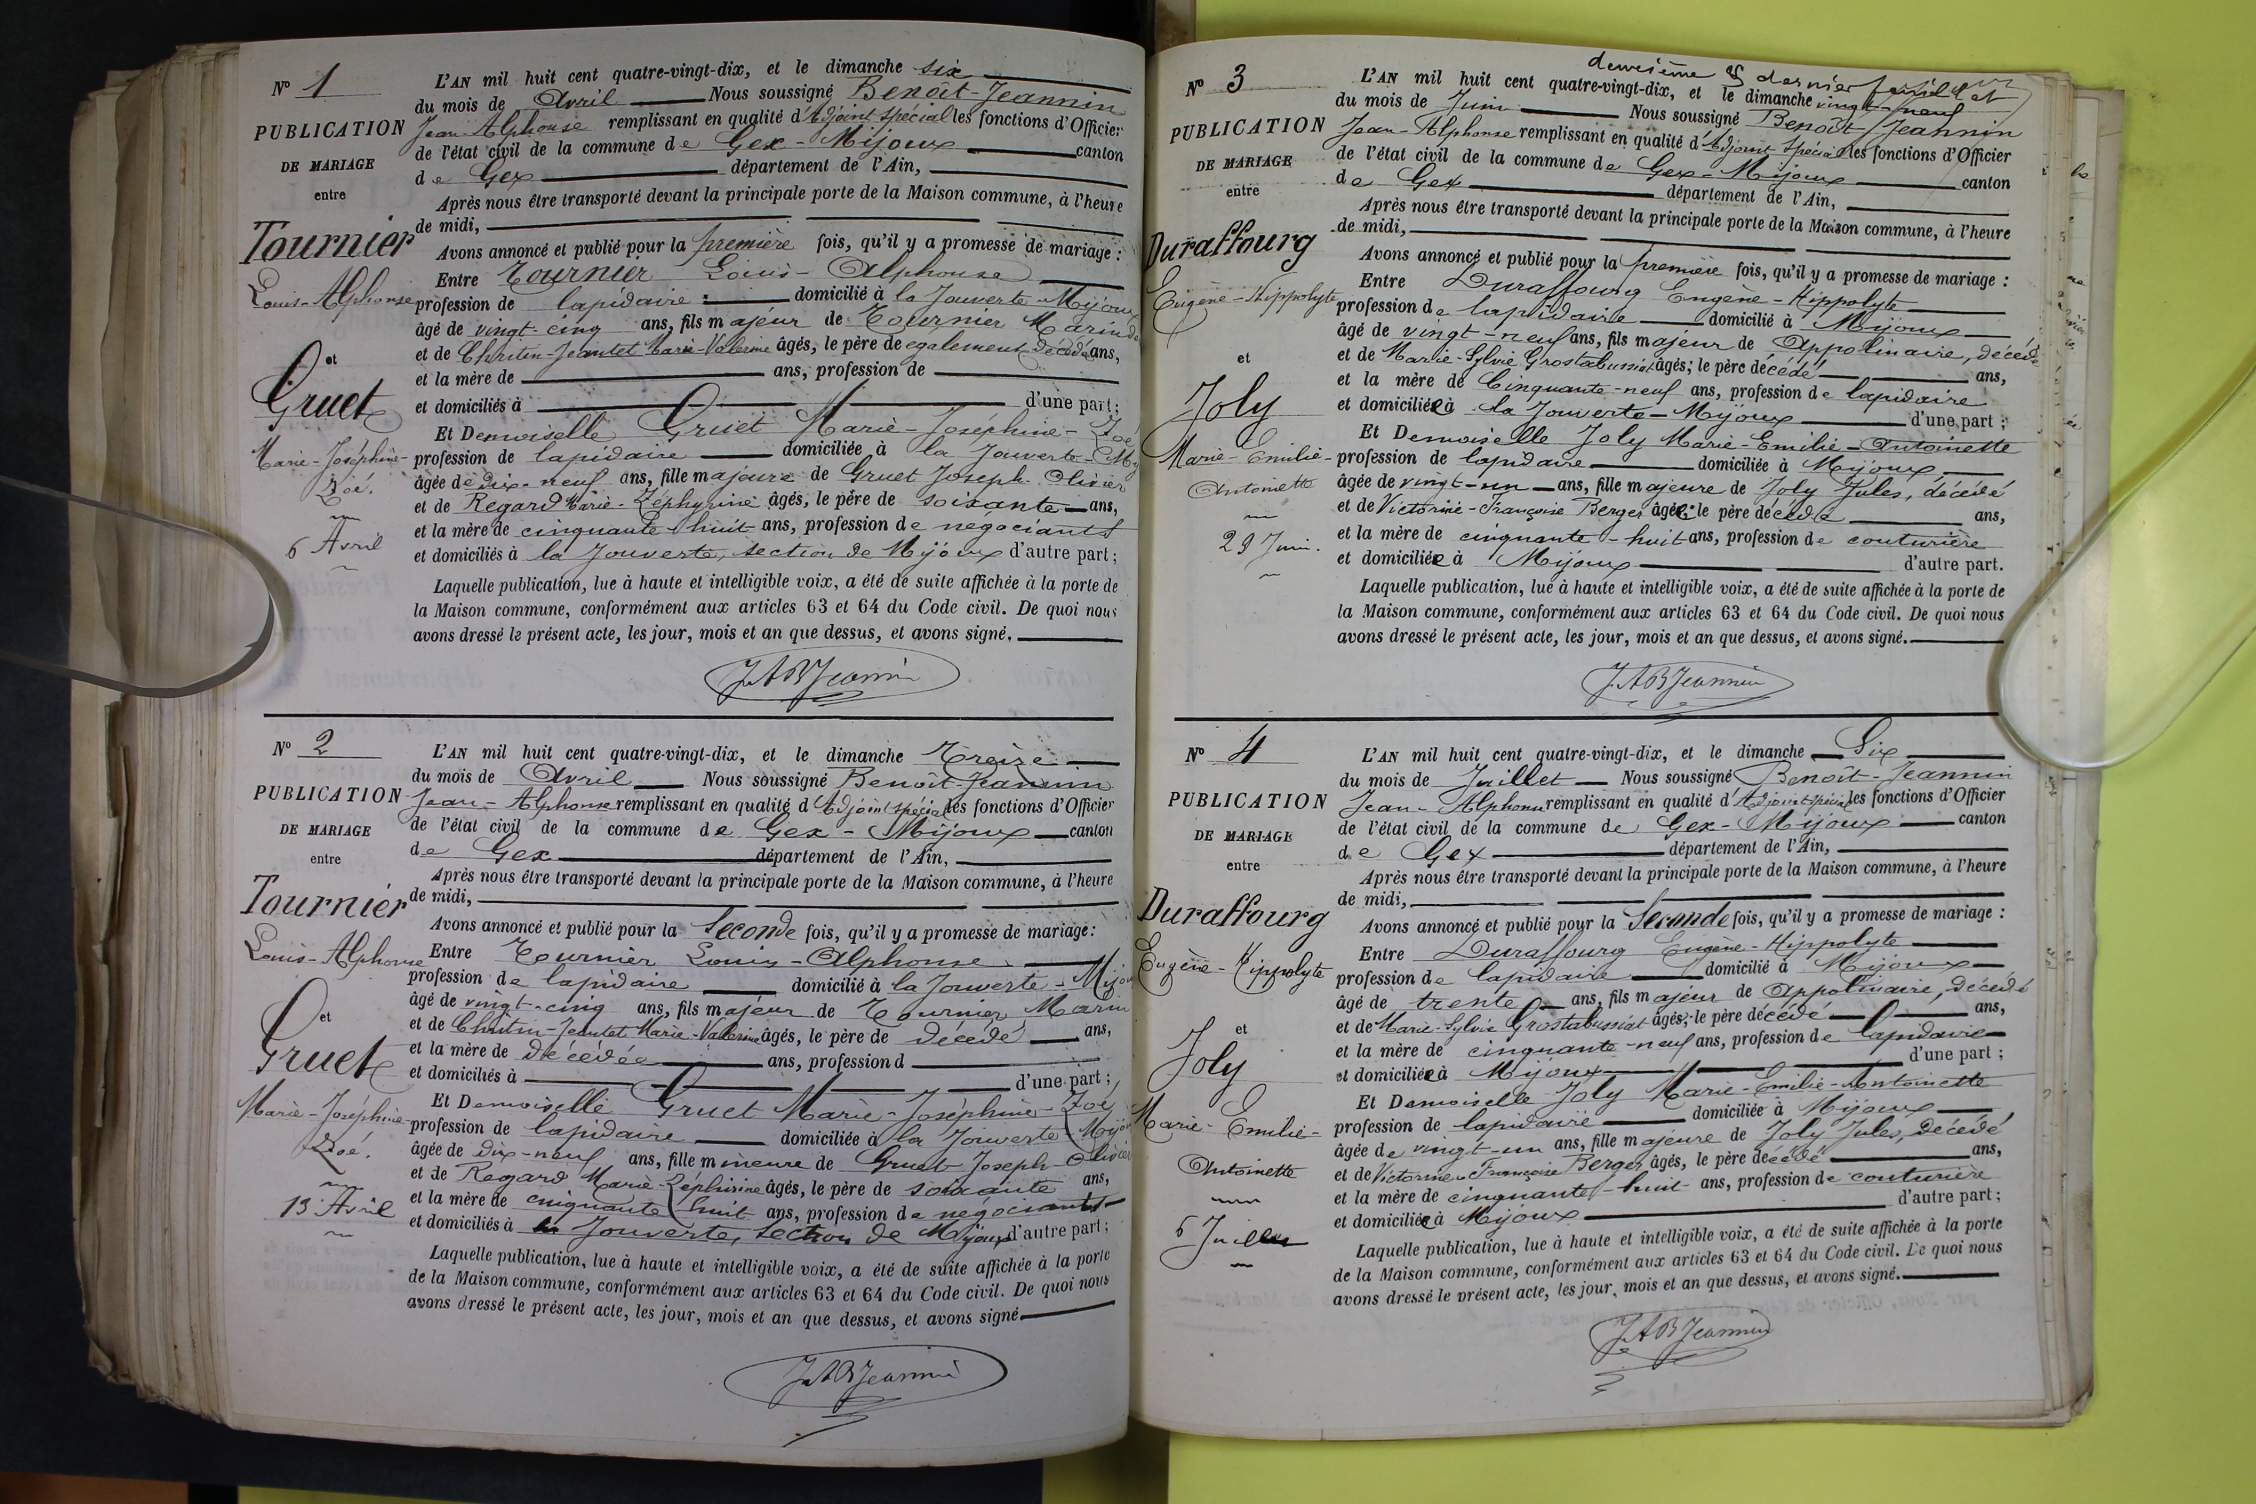 Nº 1
PUBLICATION
DE MARIAGE
entre
Tournier
Louis-Alphonse
et
Gruet
Marie-Joséphine-
Zoé.
6 Avril
L'AN mil huit cent quatre-vingt-dix, et le dimanche six
du mois de Avril Nous soussigné Benoît-Jeannin
Jean-Alphonse remplissant en qualité d'Adjoint spécial les fonctions d'Officier
de l'état civil de la commune de Gex-Mijoux canton
de Gex département de l'Ain,
Après nous être transporté devant la principale porte de la Maison commune, à l'heure
de midi,
Avons annoncé et publié pour la première fois, qu'il y a promesse de mariage :
Entre Tournier Louis-Alphonse
profession de lapidaire domicilié à la Jouverte-Mijoux
âgé de vingt-cinq ans, fils majeur de Tournier Marin
et de Chritin-Jeantet Marie-Valerine âgés, le père de egalement décédé ans,
et la mère de ans, profession de
et domiciliés à d'une part ;
Et Demoiselle Gruet Marie-Joséphine-Zoé
profession de lapidaire domiciliée à la Jouverte-Mij
âgée de dix-neuf ans, fille majeure de Gruet Joseph-Olivier
et de Regard Marie-Zéphyrine âgés, le père de soixante ans,
et la mère de cinquante-huit ans, profession de négociants
et domiciliés à la Jouverte, section de Mijoux d'autre part ;
Laquelle publication, lue à haute et intelligible voix, a été de suite affichée à la porte de
la Maison commune, conformément aux articles 63 et 64 du Code civil. De quoi nous
avons dressé le présent acte, les jour, mois et an que dessus, et avons signé.
J A B Jeannin
Nº 2
PUBLICATION
DE MARIAGE
entre
Tournier
Louis-Alphonse
et
Gruet
Marie-Joséphine
Zoé.
13 Avril
L'AN mil huit cent quatre-vingt-dix, et le dimanche Treize
du mois de Avril Nous soussigné Benoît-Jeannin
Jean-Alphonse remplissant en qualité d'Adjoint spécial les fonctions d'Officier
de l'état civil de la commune de Gex-Mijoux canton
de Gex département de l'Ain,
Après nous être transporté devant la principale porte de la Maison commune, à l'heure
de midi,
Avons annoncé et publié pour la Seconde fois, qu'il y a promesse de mariage :
Entre Tournier Louis-Alphonse
profession de lapidaire domicilié à la Jouverte-Mijou
âgé de vingt-cinq ans, fils majeur de Tournier Marin
et de Chritin-Jeantet Marie-Valerine âgés, le père de décédé ans,
et la mère de décédée ans, profession d
et domiciliés à d'une part ;
Et Demoiselle Gruet Marie-Joséphine-Zoé
profession de lapidaire domiciliée à la Jouverte-Mijou
âgée de dix-neuf ans, fille mineure de Gruet Joseph-Olivier
et de Regard Marie-Zéphirine âgés, le père de soixante ans,
et la mère de cinquante huit ans, profession de négociants
et domiciliés à la Jouverte, section de Mijoux d'autre part ;
Laquelle publication, lue à haute et intelligible voix, a été de suite affichée à la porte
de la Maison commune, conformément aux articles 63 et 64 du Code civil. De quoi nous
avons dressé le présent acte, les jour, mois et an que dessus, et avons signé
J A B Jeannin
deuxième et dernier feuillet
Nº 3
PUBLICATION
DE MARIAGE
entre
Duraffourg
Eugène-Hippolyte
et
Joly
Marie-Emilie-
Antoinette
29 Juin.
L'AN mil huit cent quatre-vingt-dix, et le dimanche vingt-neuf
du mois de Juin Nous soussigné Benoît-Jeannin
Jean-Alphonse remplissant en qualité d'Adjoint spécial les fonctions d'Officier
de l'état civil de la commune de Gex-Mijoux canton
de Gex département de l'Ain,
Après nous être transporté devant la principale porte de la Maison commune, à l'heure
de midi,
Avons annoncé et publié pour la première fois, qu'il y a promesse de mariage :
Entre Duraffourg Eugène-Hippolyte
profession de lapidaire domicilié à Mijoux
âgé de vingt-neuf ans, fils majeur de Appolinaire, décédé
et de Marie-Sylvie Grostabussiat âgés; le père décédé ans,
et la mère de Cinquante-neuf ans, profession de lapidaire
et domiciliée à la Jouverte-Mijoux d'une part ;
Et Demoiselle Joly Marie-Emilie-Antoinette
profession de lapidaire domiciliée à Mijoux
âgée de vingt-un ans, fille majeure de Joly Jules, décédé
et de Victorine-Françoise Berger âgée: le père décédé ans,
et la mère de cinquante-huit ans, profession de couturière
et domiciliée à Mijoux d'autre part.
Laquelle publication, lue à haute et intelligible voix, a été de suite affichée à la porte de
la Maison commune, conformément aux articles 63 et 64 du Code civil. De quoi nous
avons dressé le présent acte, les jour, mois et an que dessus, et avons signé.
J A B Jeannin
Nº 4
PUBLICATION
DE MARIAGE
entre
Duraffourg
Eugène-Hippolyte
et
Joly
Marie-Emilie-
Antoinette
6 Juillet
L'AN mil huit cent quatre-vingt-dix, et le dimanche Six
du mois de Juillet Nous soussigné Benoît-Jeannin
Jean-Alphonse remplissant en qualité d'Adjoint spécial les fonctions d'Officier
de l'état civil de la commune de Gex-Mijoux canton
de Gex département de l'Ain,
Après nous être transporté devant la principale porte de la Maison commune, à l'heure
de midi,
Avons annoncé et publié pour la Seconde fois, qu'il y a promesse de mariage :
Entre Duraffourg Eugène-Hippolyte
profession de lapidaire domicilié à Mijoux
âgé de trente ans, fils majeur de Appolinaire, décédé
et de Marie-Sylvie Grostabussiat âgés; le père décédé ans,
et la mère de cinquante-neuf ans, profession de lapidaire
et domiciliée à Mijoux d'une part ;
Et Demoiselle Joly Marie-Emilie-Antoinette
profession de lapidaire domiciliée à Mijoux
âgée de vingt-un ans, fille majeure de Joly Jules, décédé
et de Victorine-Françoise Berger âgés, le père décédé ans,
et la mère de cinquante-huit ans, profession de couturière
et domiciliée à Mijoux d'autre part ;
Laquelle publication, lue à haute et intelligible voix, a été de suite affichée à la porte
de la Maison commune, conformément aux articles 63 et 64 du Code civil. De quoi nous
avons dressé le présent acte, les jour, mois et an que dessus, et avons signé.
J A B Jeannin